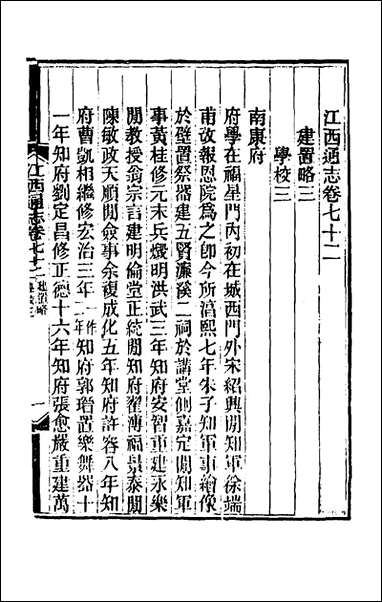 江西通志卷七十二
建置略三
學校三
南康府
府學在福星門內初在城西門外宋紹興閒知軍徐端
甫改報恩院爲之卽今所淳熙七年朱子知軍事繪像
於壁置祭器建五賢濂溪二祠於講堂側嘉定閒知軍
事黃桂修元末兵燬明洪武三年知府安智重建永樂
閒教授翁宗言建明倫堂正統閒知府翟溥福景泰閒
陳敏政天順閒僉事余復成化五年知府許容八年知
府曹凱相繼修宏治三年一作二年知府郭瑨置樂舞器十
一年知府劉定昌修正德十六年知府張愈嚴重建萬
江西通志卷七十二 建置略 學校三 一